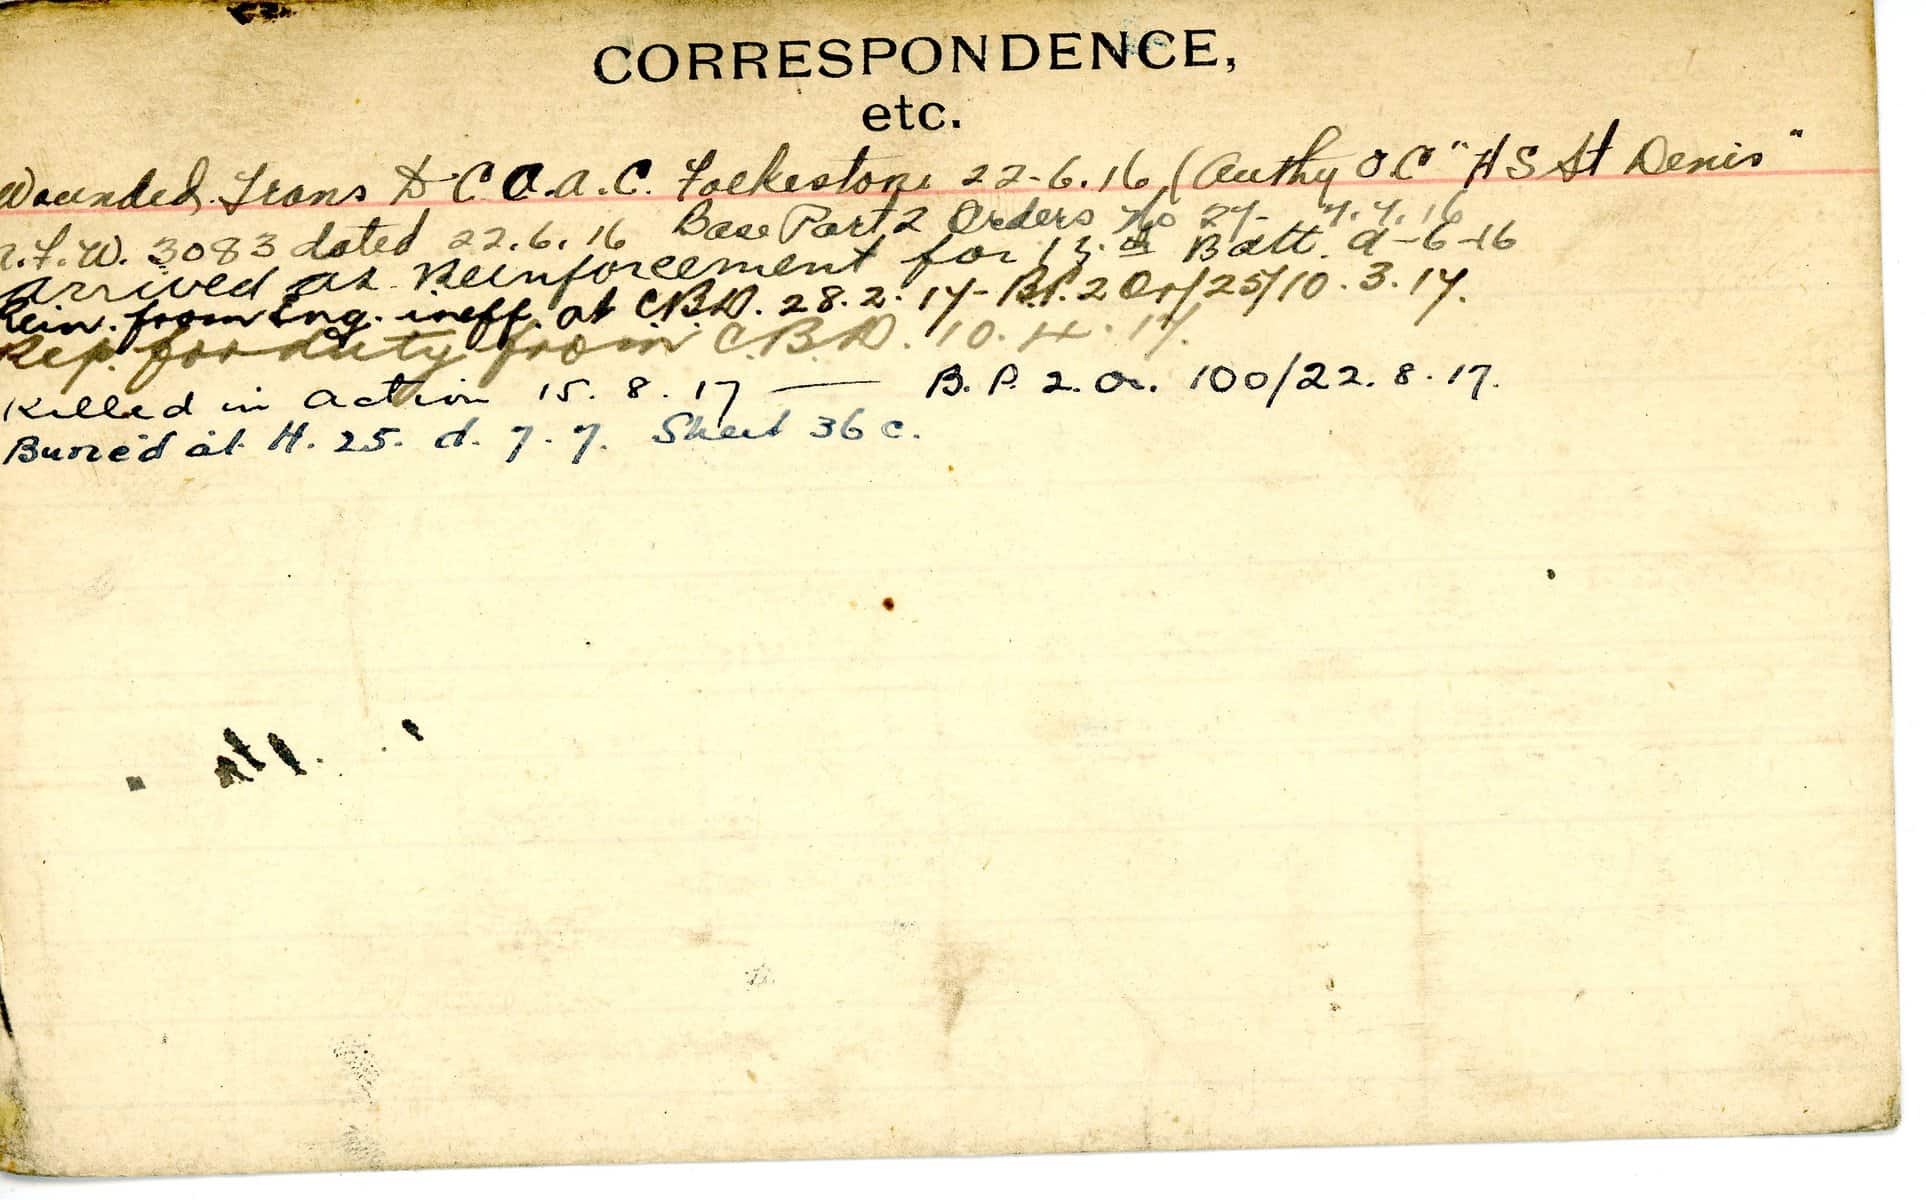 CORRESPONDENCE,
etc.
Wounded. Trans to C.C.A.C. Folkestone 22-6.16 (Authy O.C "H S St Denis"
A.F.W. 3083 dated 22.6.16 Base Part 2 Orders No 27- 7.7.16
Arrived as Reinforcement for 13th Batt. 9-6-16
Rein. from Eng. ineff. at C.B.D. 28.2.17- B.P.2 Or/25/10.3.17.
Rep. for duty from C.B.D. 10.4.17.
Killed in action 15.8.17 — B.P.2.Or. 100/22.8.17.
Buried at H.25.d.7.7. Sheet 36c.